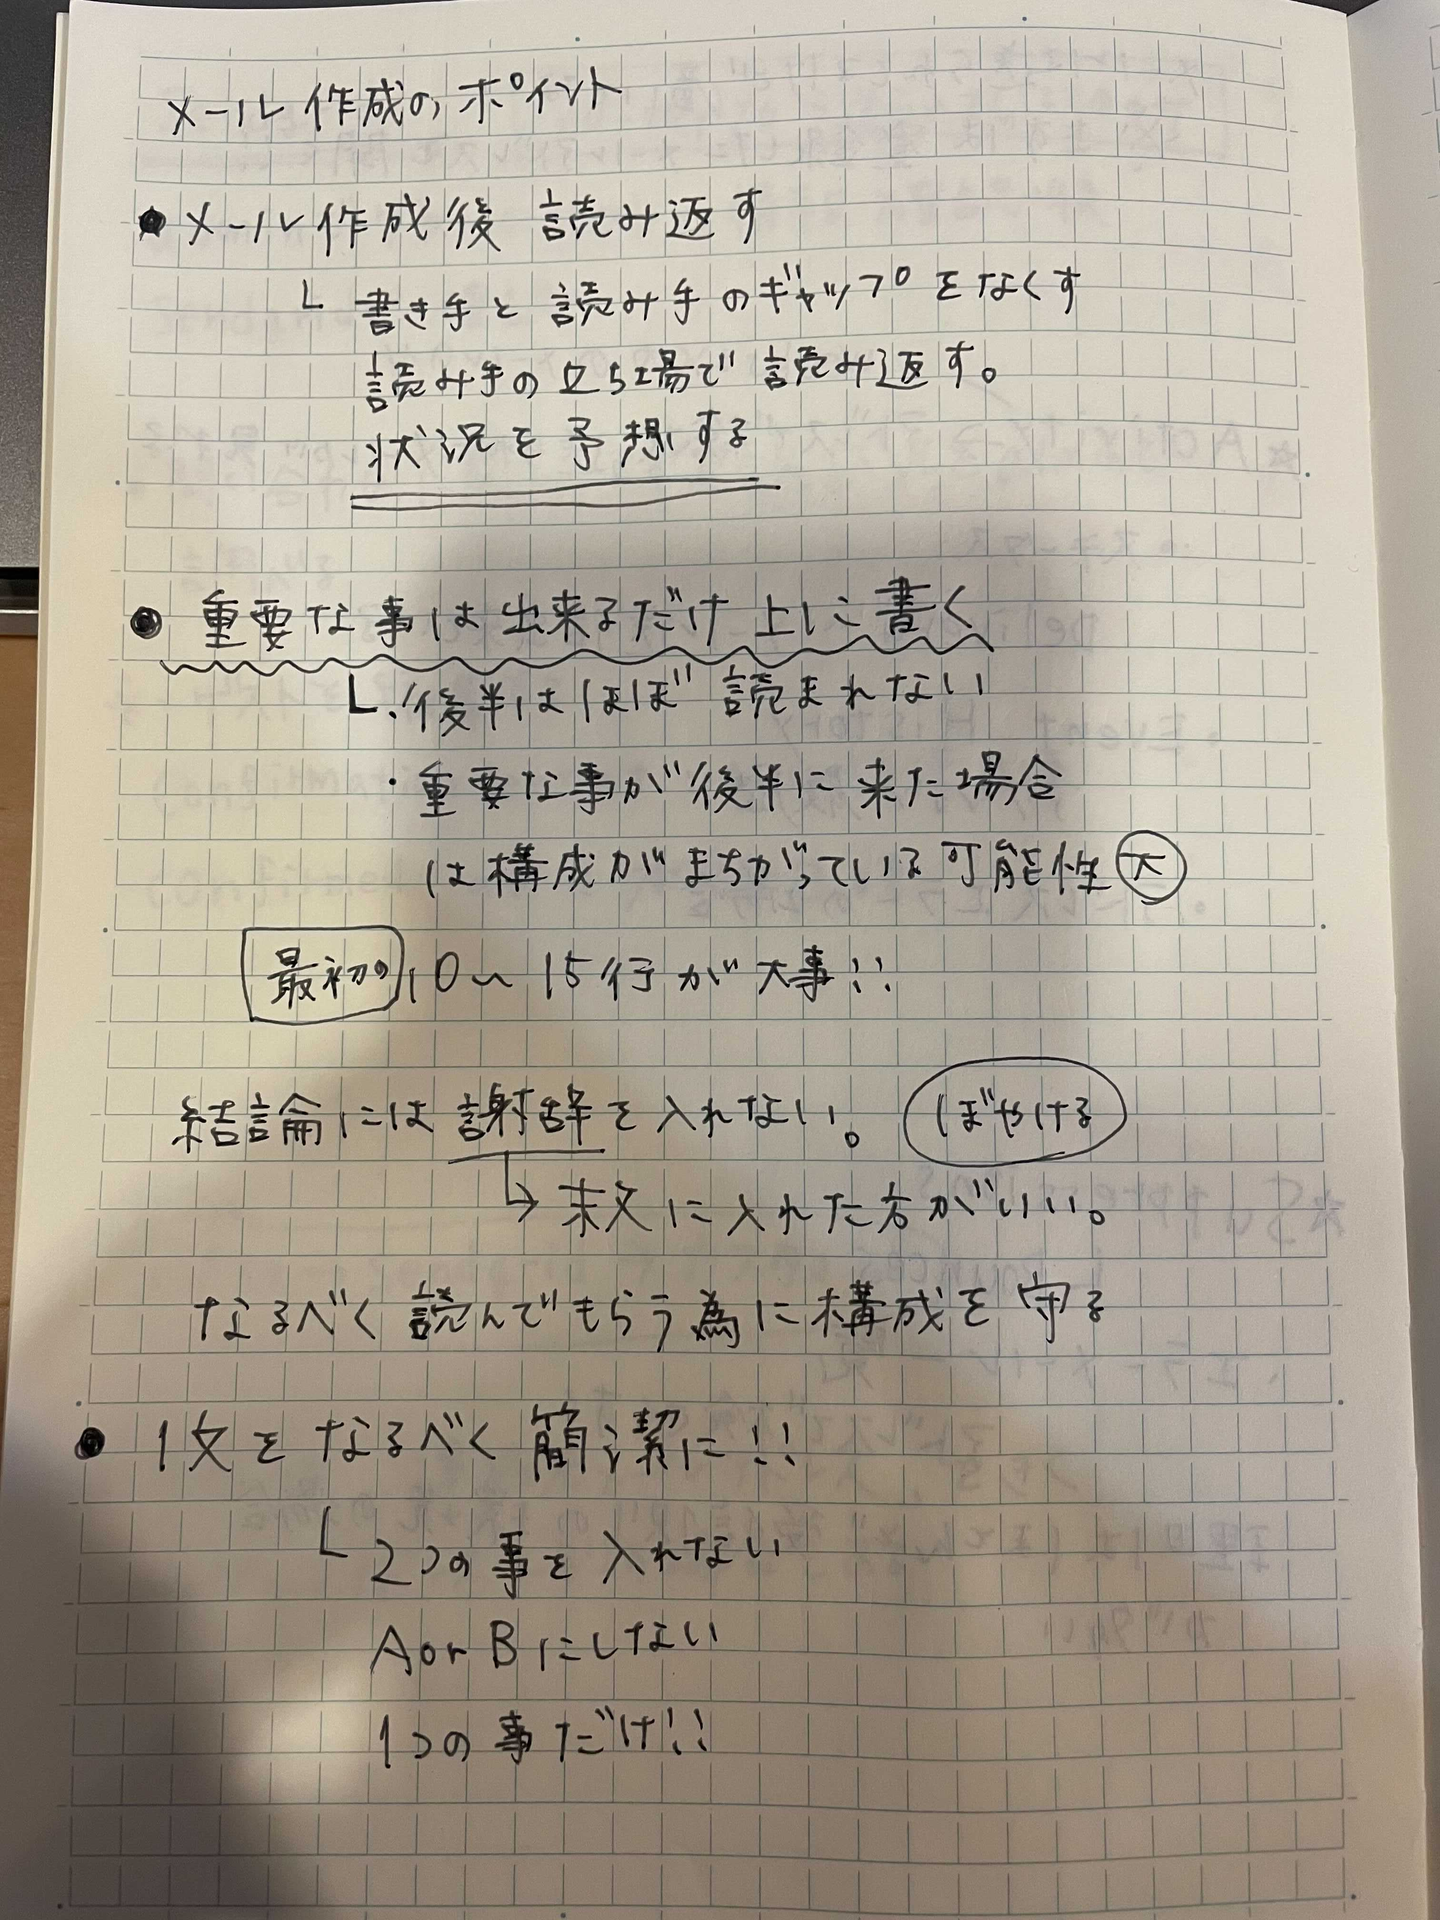 メール作成のポイント
● メール作成後 読み返す
└ 書き手と読み手のギャップをなくす
読み手の立ち場で読み返す。
状況を予想する
● 重要な事は出来るだけ上に書く
└ ・後半はほぼ読まれない
・重要な事が後半に来た場合
は構成がまちがっている可能性 大
最初の10〜15行が大事!!
結論には謝辞を入れない。 ぼやける
→ 末文に入れた方がいい。
なるべく読んでもらう為に構成を守る
● 1文をなるべく簡潔に!!
└ 2つの事を入れない
A or B にしない
1つの事だけ!!